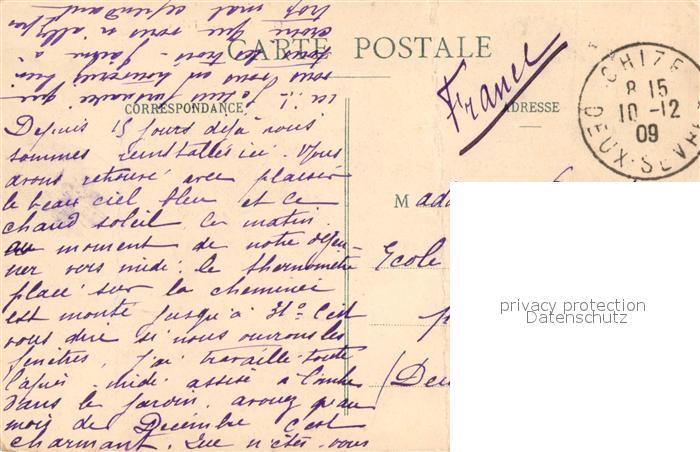 CARTE POSTALE
CORRESPONDANCE
ADRESSE
France
CHIZE
8 15
10 -12
09
DEUX-SEVRES
Depuis 15 jours déjà nous
sommes réinstallés ici. Nous
avons retrouvé avec plaisir
le beau ciel bleu et ce
chaud soleil. Ce matin
au moment de notre déjeu-
ner vers midi le thermomètre
placé sur la cheminée
est monté jusqu'à 31°. C'est
vous dire si nous ouvrons les
fenêtres. J'ai travaillé toute
l'après-midi assise à l'ombre
dans le jardin. avouez qu'au
mois de Décembre c'est
charmant. Que n'êtes-vous
ici !!
vous
croire que vous n'allez pas
trop mal cependant
M ada
Ecole
(Deu
privacy protection
Datenschutz